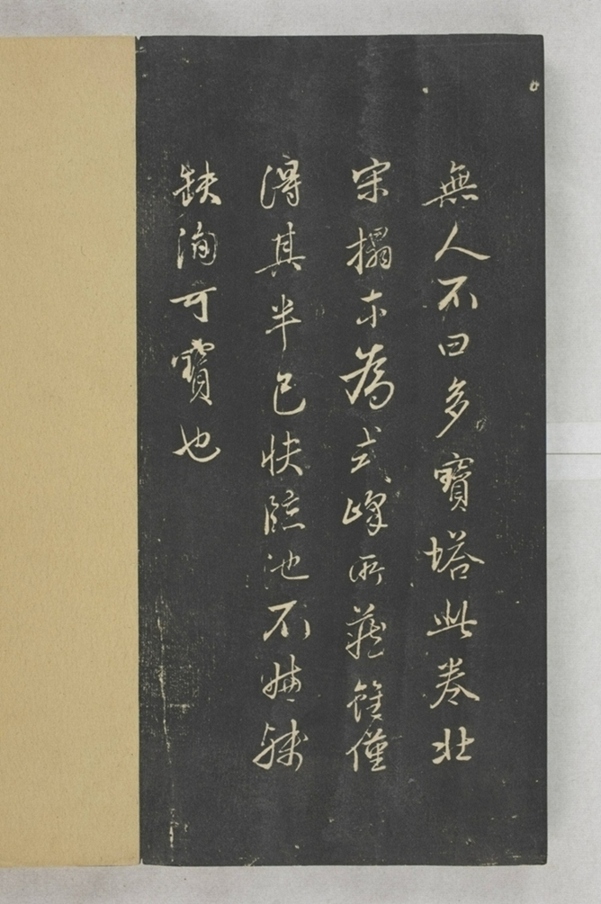 無人不曰多寶塔此卷北
宋搨亦為式峰所藏雖僅
得其半已快臨池不嫌殘
缺洵可寶也